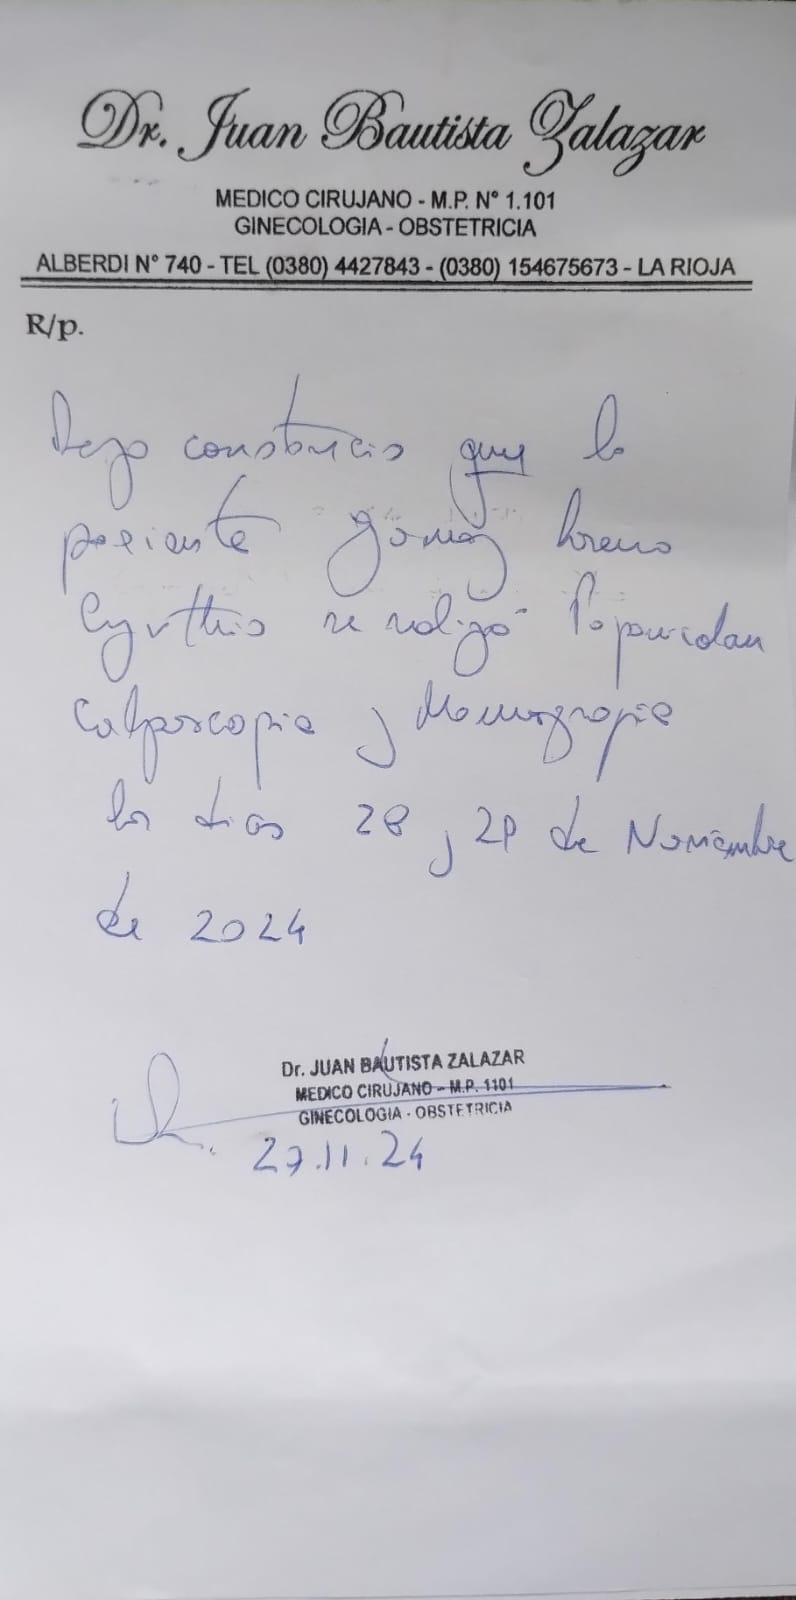 Dr. Juan Bautista Zalazar
MEDICO CIRUJANO - M.P. N° 1.101
GINECOLOGIA - OBSTETRICIA
ALBERDI N° 740 - TEL (0380) 4427843 - (0380) 154675673 - LA RIOJA
R/p.
Dejo constancia que la
paciente Gómez Lorena
Cynthia se realizó Papanicolau
Colposcopia y Mamografia
los dias 28 y 29 de Noviembre
de 2024
Dr. JUAN BAUTISTA ZALAZAR
MEDICO CIRUJANO - M.P. 1101
GINECOLOGIA - OBSTETRICIA
27.11.24